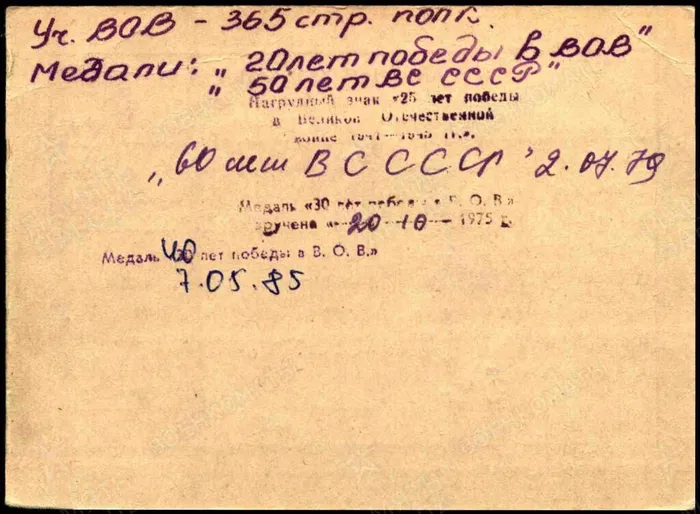 Уч. ВОВ - 365 стр. полк.
Медали: „20 лет победы в ВОВ"
„50 лет ВС СССР"
Нагрудный знак «25 лет победы
в Великой Отечественной
войне 1941—1945 гг.».
„60 лет ВС СССР" 2.07.79
Медаль «30 лет победы в В. О. В.»
вручена «—20—10—1975 г.
Медаль «40 лет победы в В. О. В.»
7.05.85